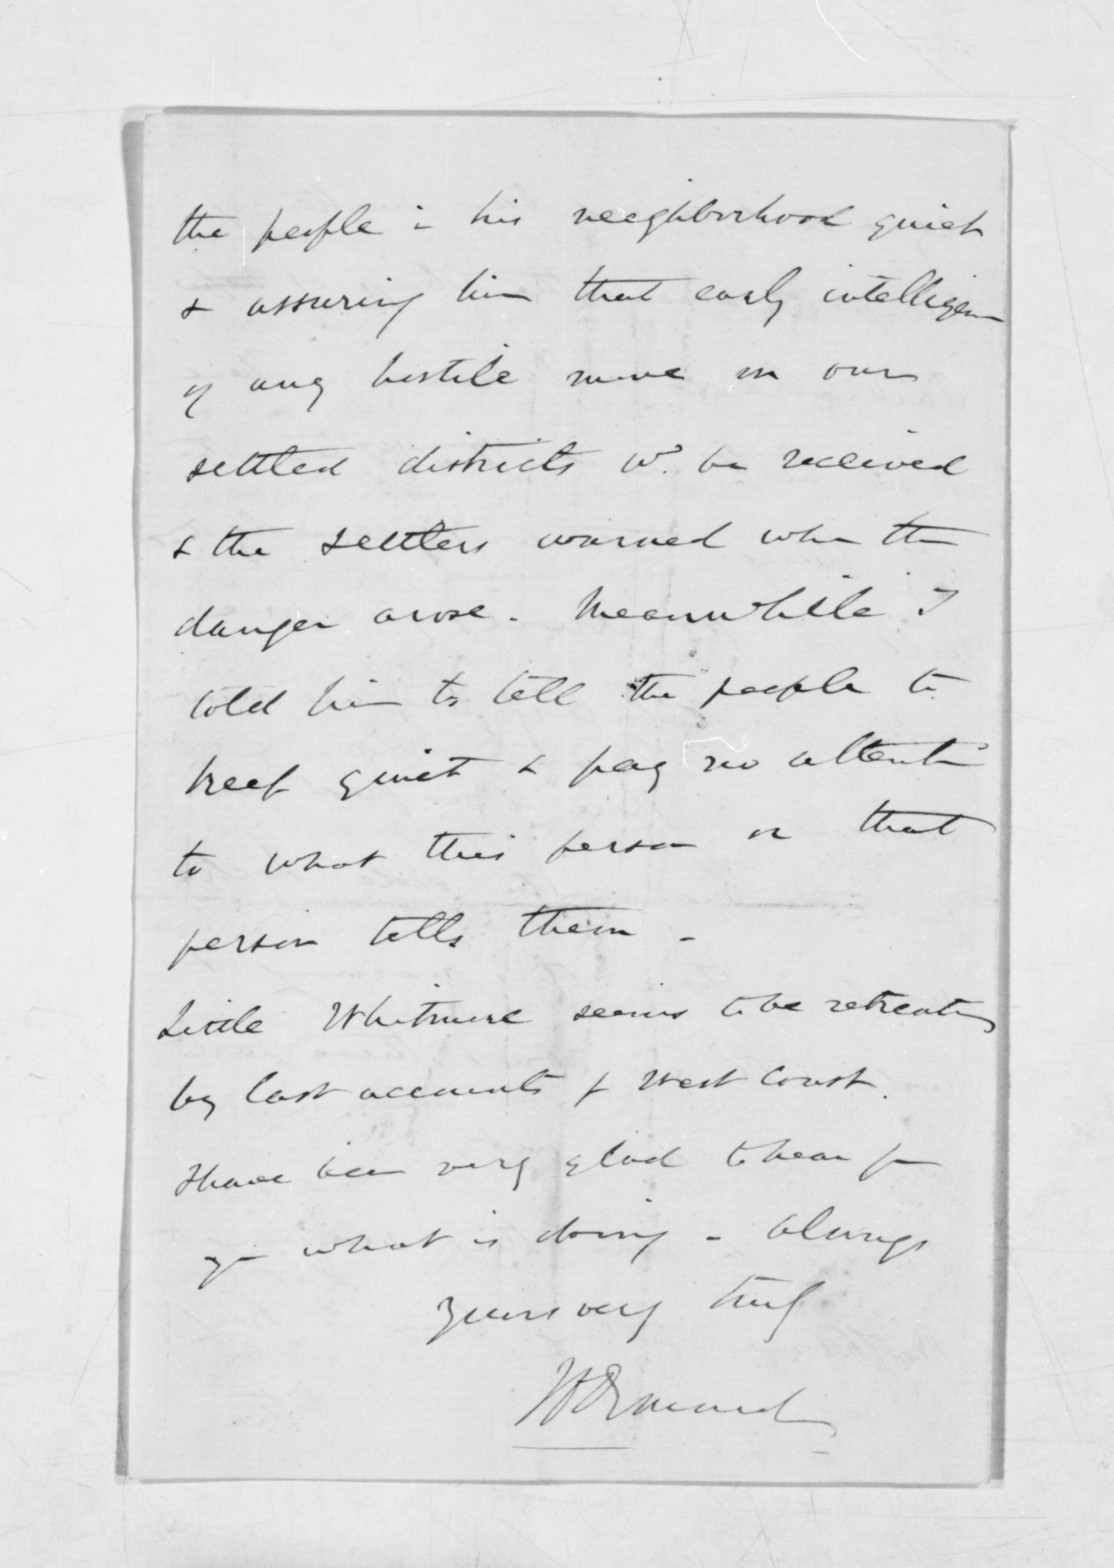 the people in his neeghborhood quiet
& assuring him that early intelligence
of any hostile move in our
settled districts wd. be received
& the settlers warned when the
danger arose. Meanwhile I
told him to tell the people to
keep quiet & pay no attention
to what this person or that
person tells them -
Little Whitmore seems to be retreating
by last accounts f West Coast.
Have been very glad to hear from
you what is doing - Always
yours very truly